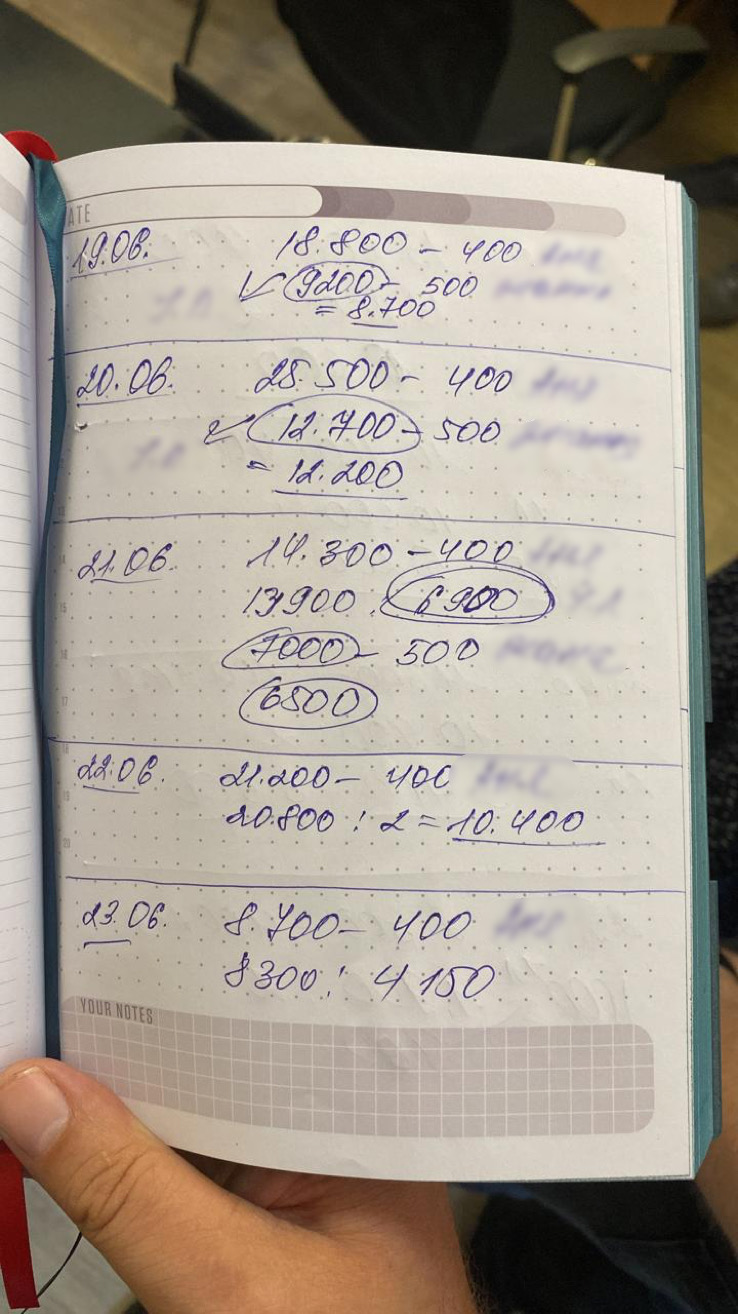 ATE
19.06. 18.800 - 400
9200 - 500
= 8.700
20.06. 25.500 - 400
12.700 - 500
= 12.200
21.06. 14.300 - 400
13900 : 6900
7000 - 500
6500
22.06. 21.200 - 400
20.800 : 2 = 10.400
23.06. 8.700 - 400
8300 : 4150
YOUR NOTES